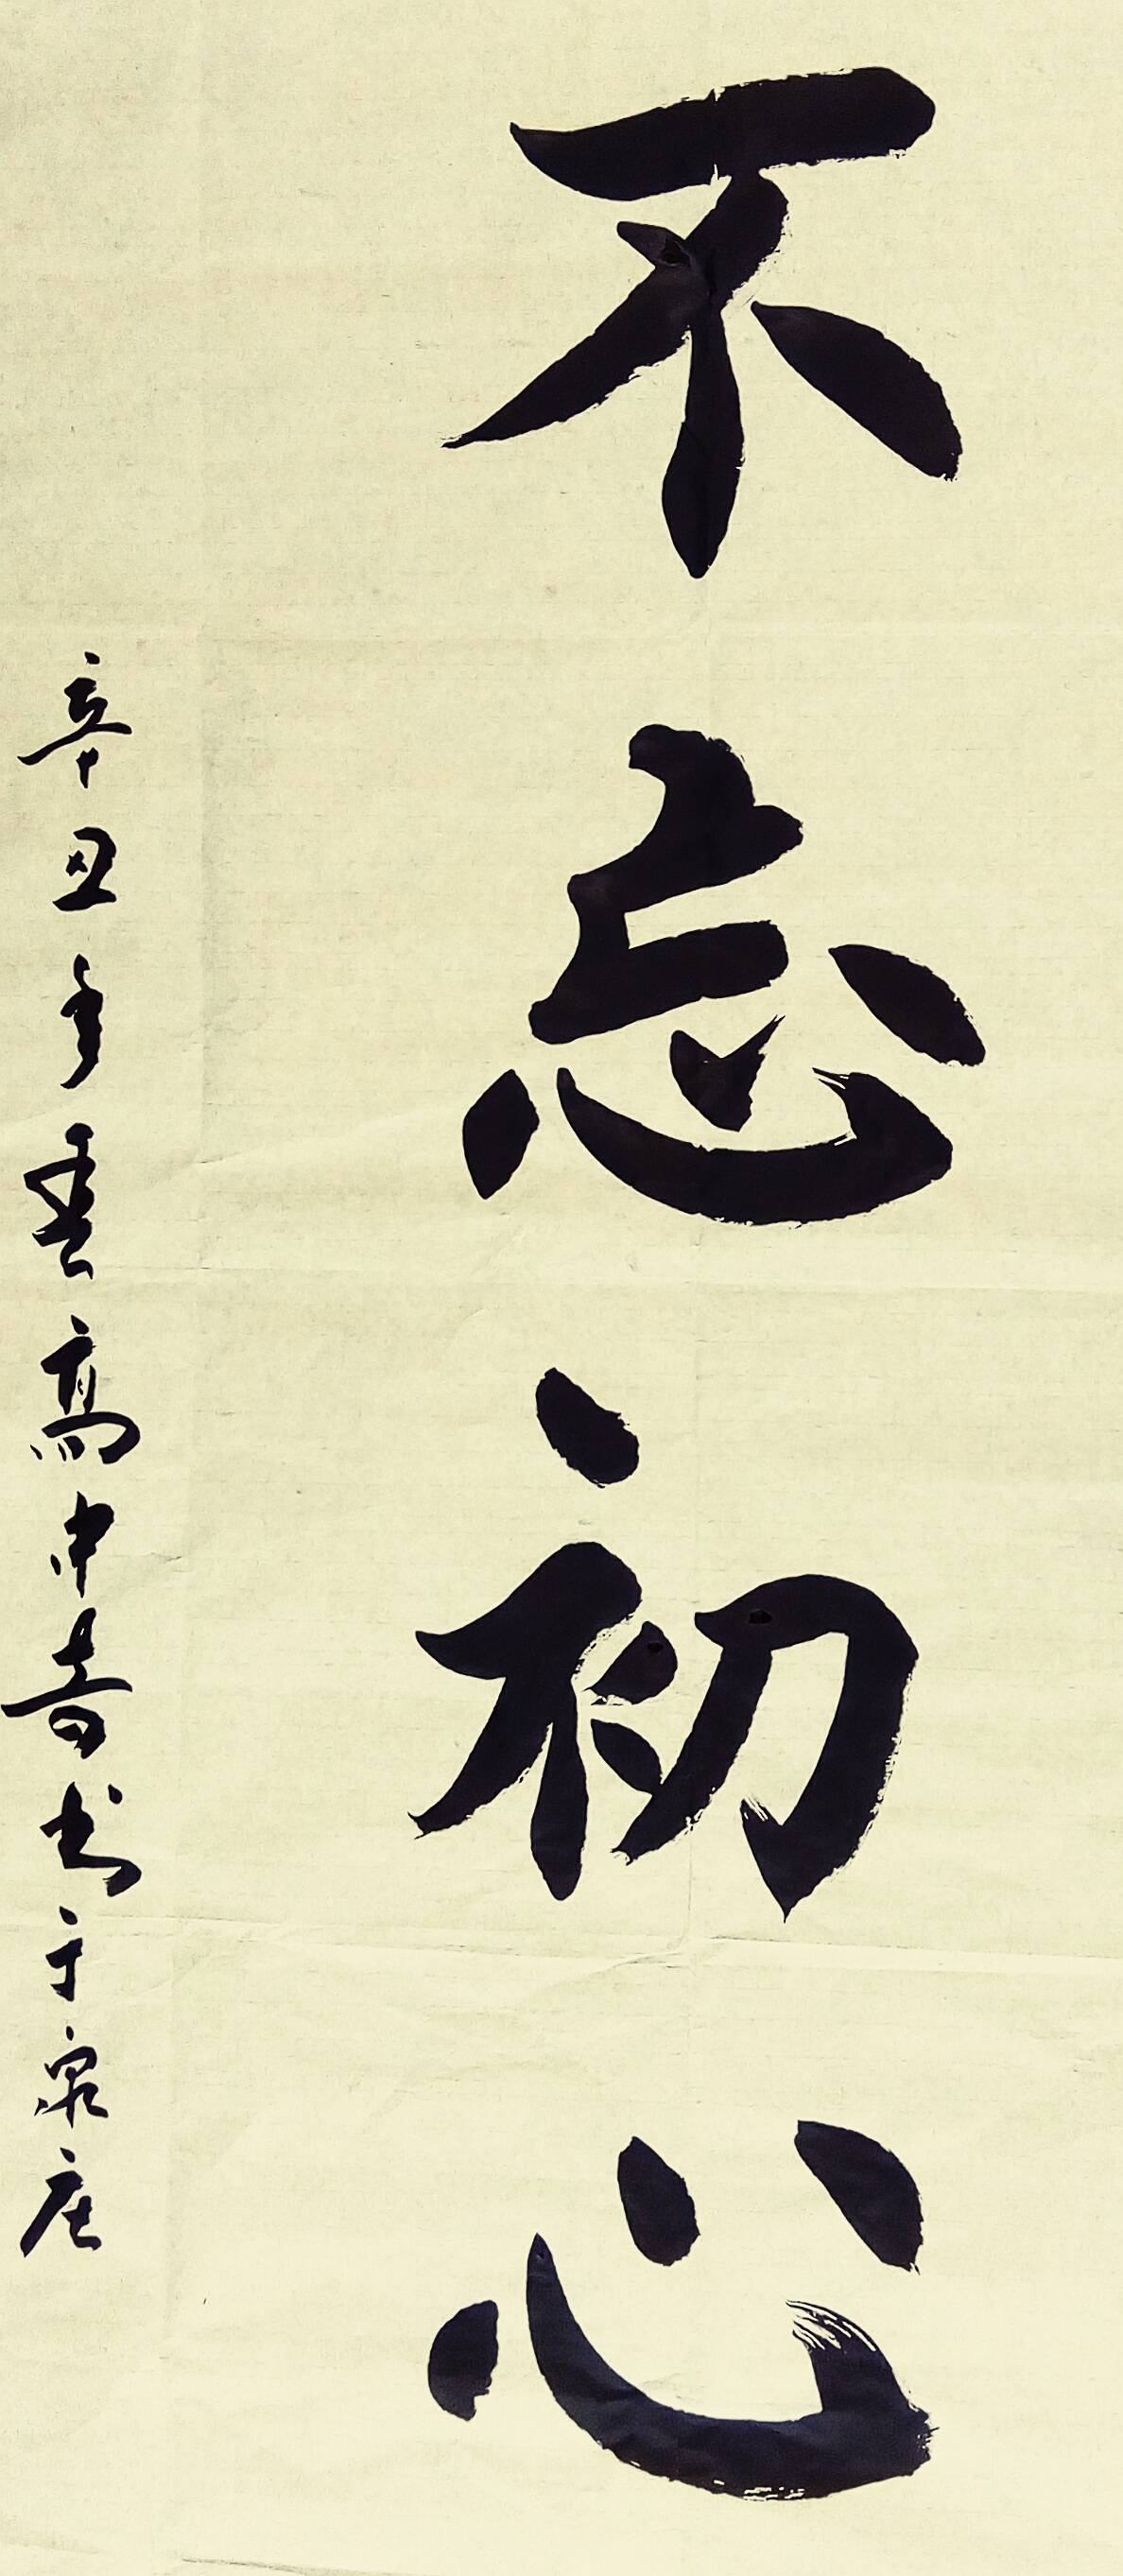 不忘初心
辛丑年夏高中奇书于泉庄